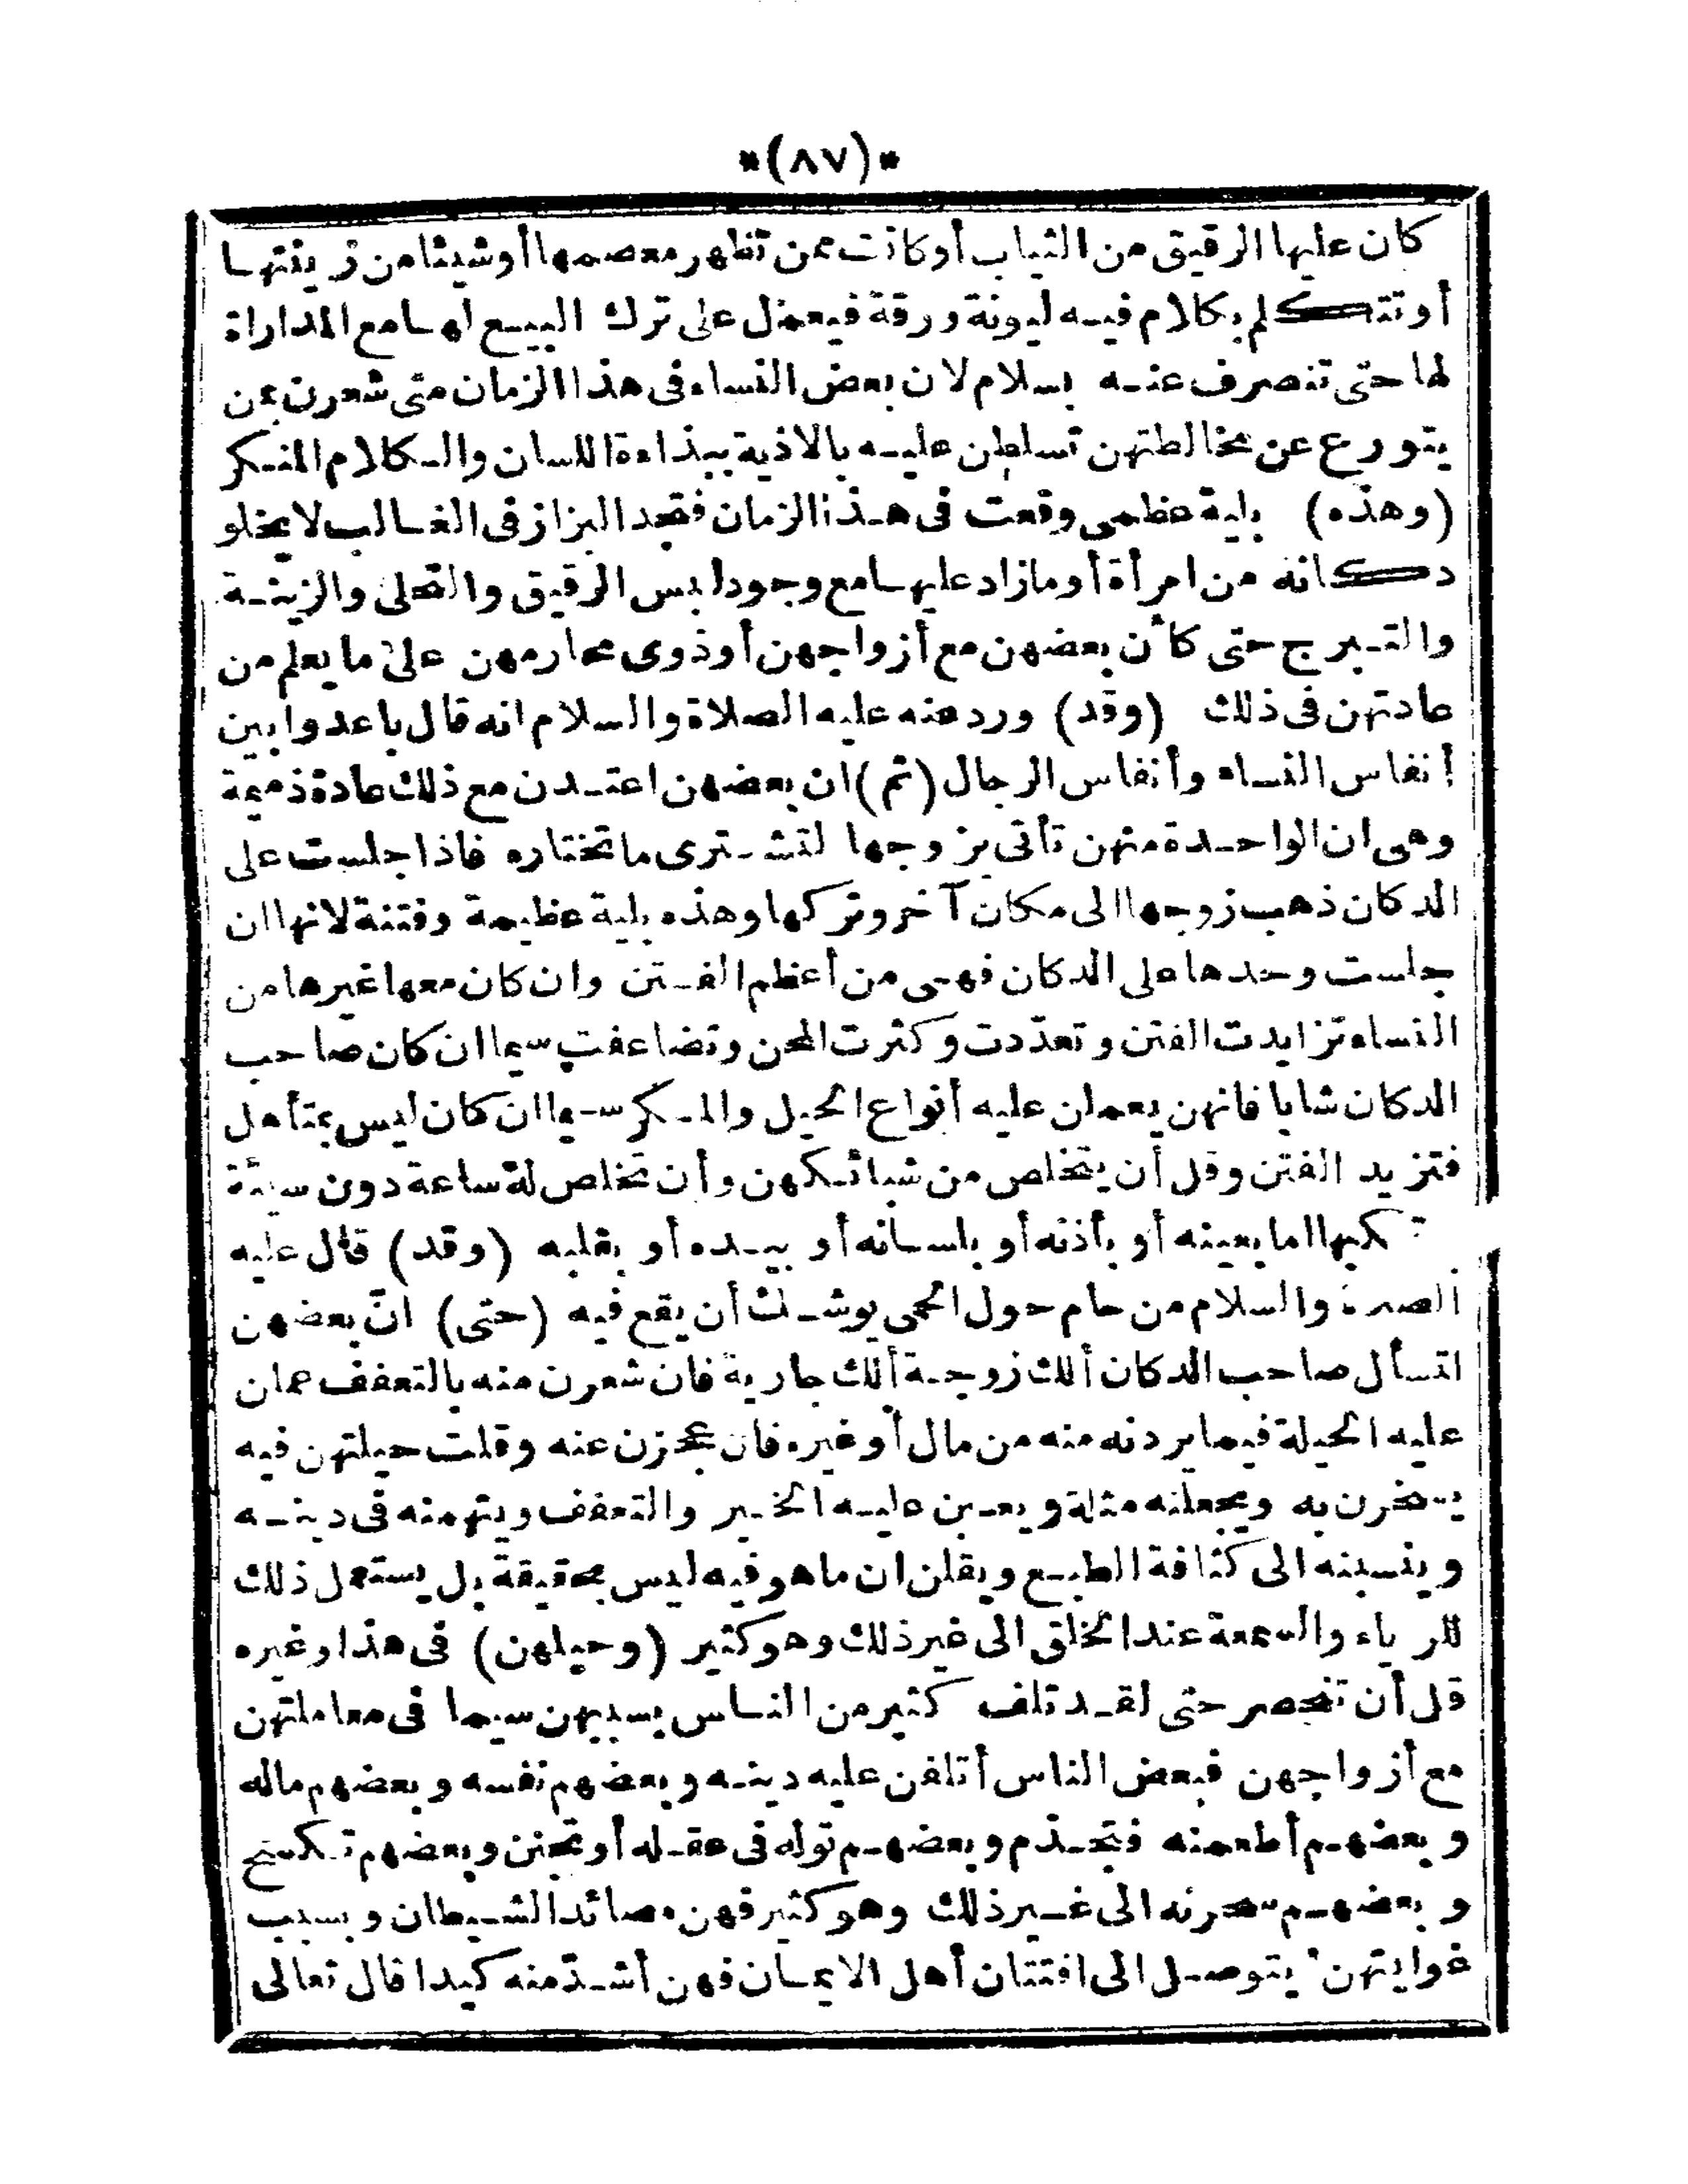 *(٨٧)*
كان عليها الرقيق من الثياب أو كانت ممن تظهر معصمها أو شيئا من زينتها
أو تتكلم بكلام فيه ليونة ورقة فيعمل على ترك البيع لها مع المداراة
لها حتى تنصرف عنه بسلام لان بعض النساء فى هذا الزمان متى شعرن بمن
يتورع عن مخالطتهن تسلطن عليه بالاذية ببذاءة اللسان والكلام المنكر
(وهذه) بلية عظمى وقعت فى هذا الزمان فتجد البزاز فى الغالب لا يخلو
دكانه من امرأة أو ما زاد عليها مع وجود لبس الرقيق والتحلى والزينة
والتبرج حتى كأن بعضهن مع أزواجهن أو ذوى محارمهن على ما يعلم من
عادتهن فى ذلك (وقد) ورد عنه عليه الصلاة والسلام انه قال باعدوا بين
أنفاس النساء وأنفاس الرجال (ثم) ان بعضهن اعتدن مع ذلك عادة ذميمة
وهى ان الواحدة منهن تأتى بزوجها لتشترى ما تختاره فاذا جلست على
الدكان ذهب زوجها الى مكان آخر وتركها وهذه بلية عظيمة وفتنة لانها ان
جلست وحدها على الدكان فهى من أعظم الفتن وان كان معها غيرها من
النساء تزايدت الفتن وتعدّدت وكثرت المحن وتضاعفت سيما ان كان صاحب
الدكان شابا فانهن يعملن عليه أنواع الحيل والمكر سيما ان كان ليس بمتأهل
فتزيد الفتن وقل أن يتخلص من شبائكهن وأن تخلص له ساعة دون سيئة
كبها اما بعينه أو بأذنه أو بلسانه أو بيده أو بقلبه (وقد) قال عليه
والسلام من حام حول الحمى يوشك أن يقع فيه (حتى) انّ بعضهن
لتسأل صاحب الدكان ألك زوجة ألك جارية فان شعرن منه بالتعفف عملن
عليه الحيلة فيما يردنه منه من مال أو غيره فان عجزن عنه وقلت حيلتهن فيه
يسخرن به ويجعلنه مثلة ويعبن عليه الخير والتعفف ويتهمنه فى دينه
وينسبنه الى كثافة الطبع ويقلن ان ما هو فيه ليس بحقيقة بل يستعمل ذلك
للرياء والسمعة عند الخلق الى غير ذلك وهو كثير (وحيلهن) فى هذا وغيره
قل أن تنحصر حتى لقد تلف كثير من الناس بسببهن سيما فى معاملتهن
مع أزواجهن فبعض الناس أتلفن عليه دينه وبعضهم نفسه وبعضهم ماله
وبعضهم أطعمنه فتجذم وبعضهم توله فى عقله أو تجنن وبعضهم تكسح
وبعضهم سحرنه الى غير ذلك وهو كثير فهن مصائد الشيطان وبسبب
غوايتهن يتوصل الى افتتان أهل الايمان فهن أشدّ منه كيدا قال تعالى